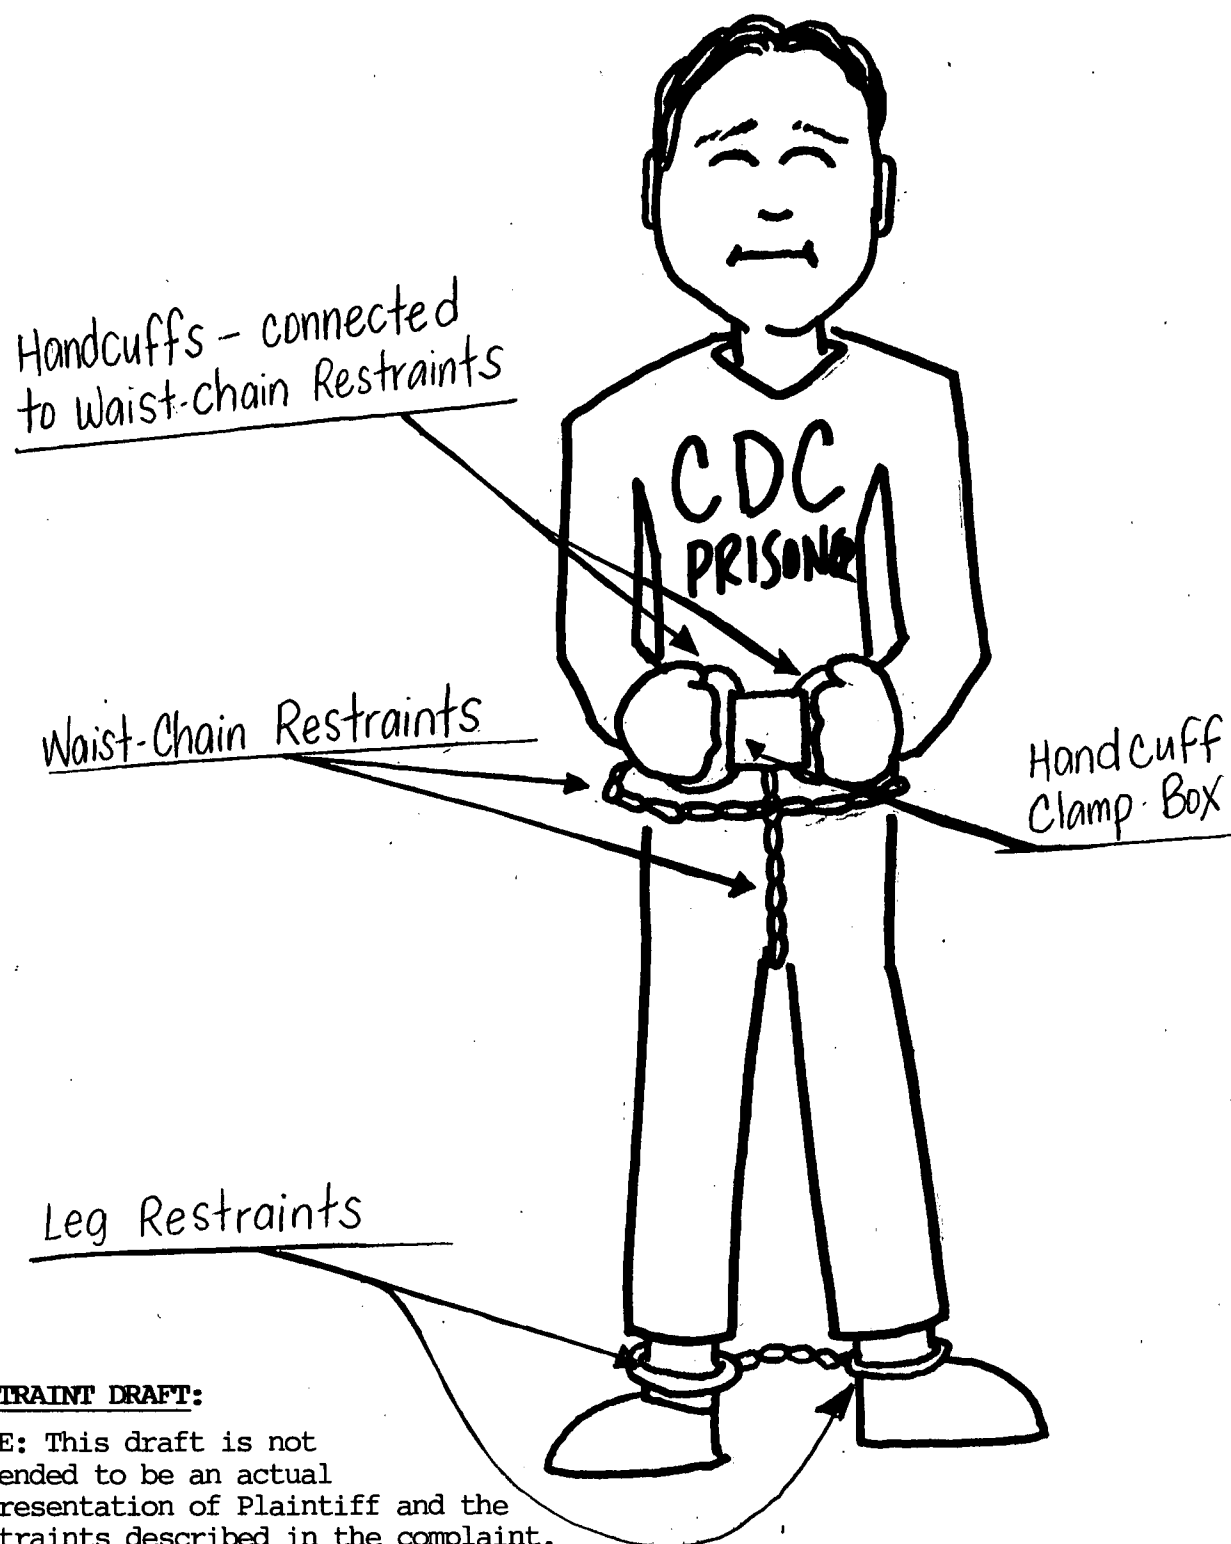 Handcuffs - connected
to Waist-Chain Restraints
CDC
PRISONER
Waist-Chain Restraints
Handcuff
Clamp Box
Leg Restraints
TRAINT DRAFT:
E: This draft is not
ended to be an actual
resentation of Plaintiff and the
traints described in the complaint.